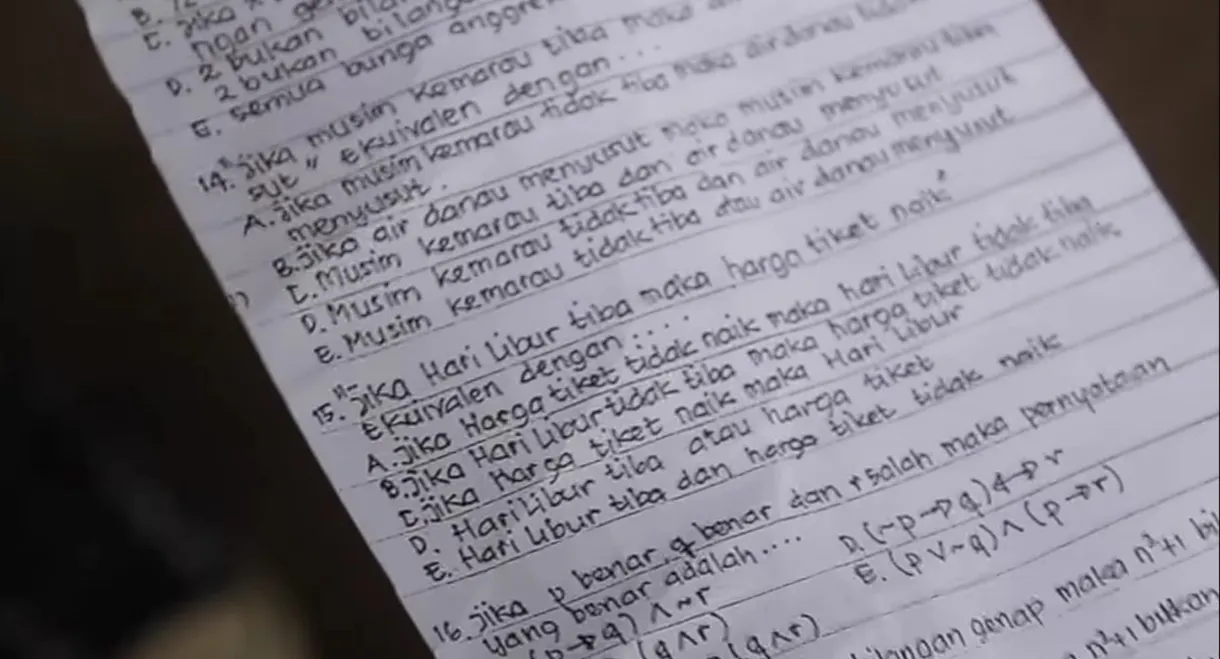 C. Jika
D. 2 bukan
2 bukan
E. semua bunga
14. "Jika musim kemarau tiba maka
sut" ekuivalen dengan....
A. Jika musim kemarau tidak tiba maka air danau
menyusut.
B. Jika air danau menyusut maka musim kemarau tiba
C. Musim kemarau tiba dan air danau menyusut
D. Musim kemarau tidak tiba dan air danau menyusut
E. Musim kemarau tidak tiba atau air danau menyusut
15. "Jika Hari Libur tiba maka harga tiket naik"
ekuivalen dengan....
A. Jika Harga tiket tidak naik maka hari libur tidak tiba
B. Jika Hari Libur tidak tiba maka harga tiket tidak naik.
C. Jika Harga tiket naik maka Hari Libur
D. Hari Libur tiba atau harga tiket
E. Hari Libur tiba dan harga tiket tidak naik
16. Jika p benar, q benar dan r salah maka pernyataan
yang benar adalah....
q) ∧ ~r
D. (~p → q) ↔ r
(q ∧ r)
E. (p ∨ ~q) ∧ (p → r)
(q ∧ r)
genap maka n²+1
n²+1 bukan